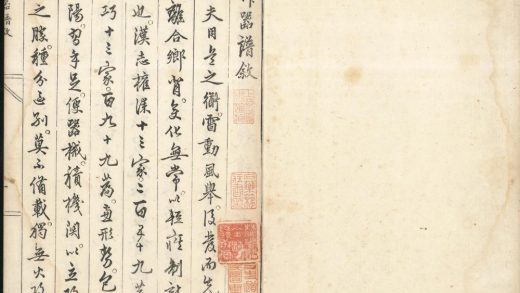 器譜敘
夫用兵之術雷動風舉後發而先
離合鄉背變化無常以輕疾制敵
也漢志權謀十三家二百五十九
巧十三家百九十九篇兼形勢包
陽習手足便器械積機関以立攻
之勝種分區別莫不備載獨無火攻
器譜敘